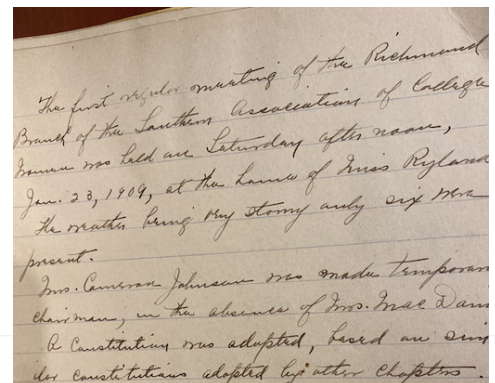 The first regular meeting of the Richmond
Branch of the Southern Association of College
Women was held on Saturday afternoon,
Jan. 23, 1909, at the home of Miss Ryland
The weather being very stormy only six were
present.
Mrs. Cameron Johnson was made temporary
chairman, in the absence of Mrs. Mac
A Constitution was adopted, based on sim
ilar constitutions adopted by other Chapters.